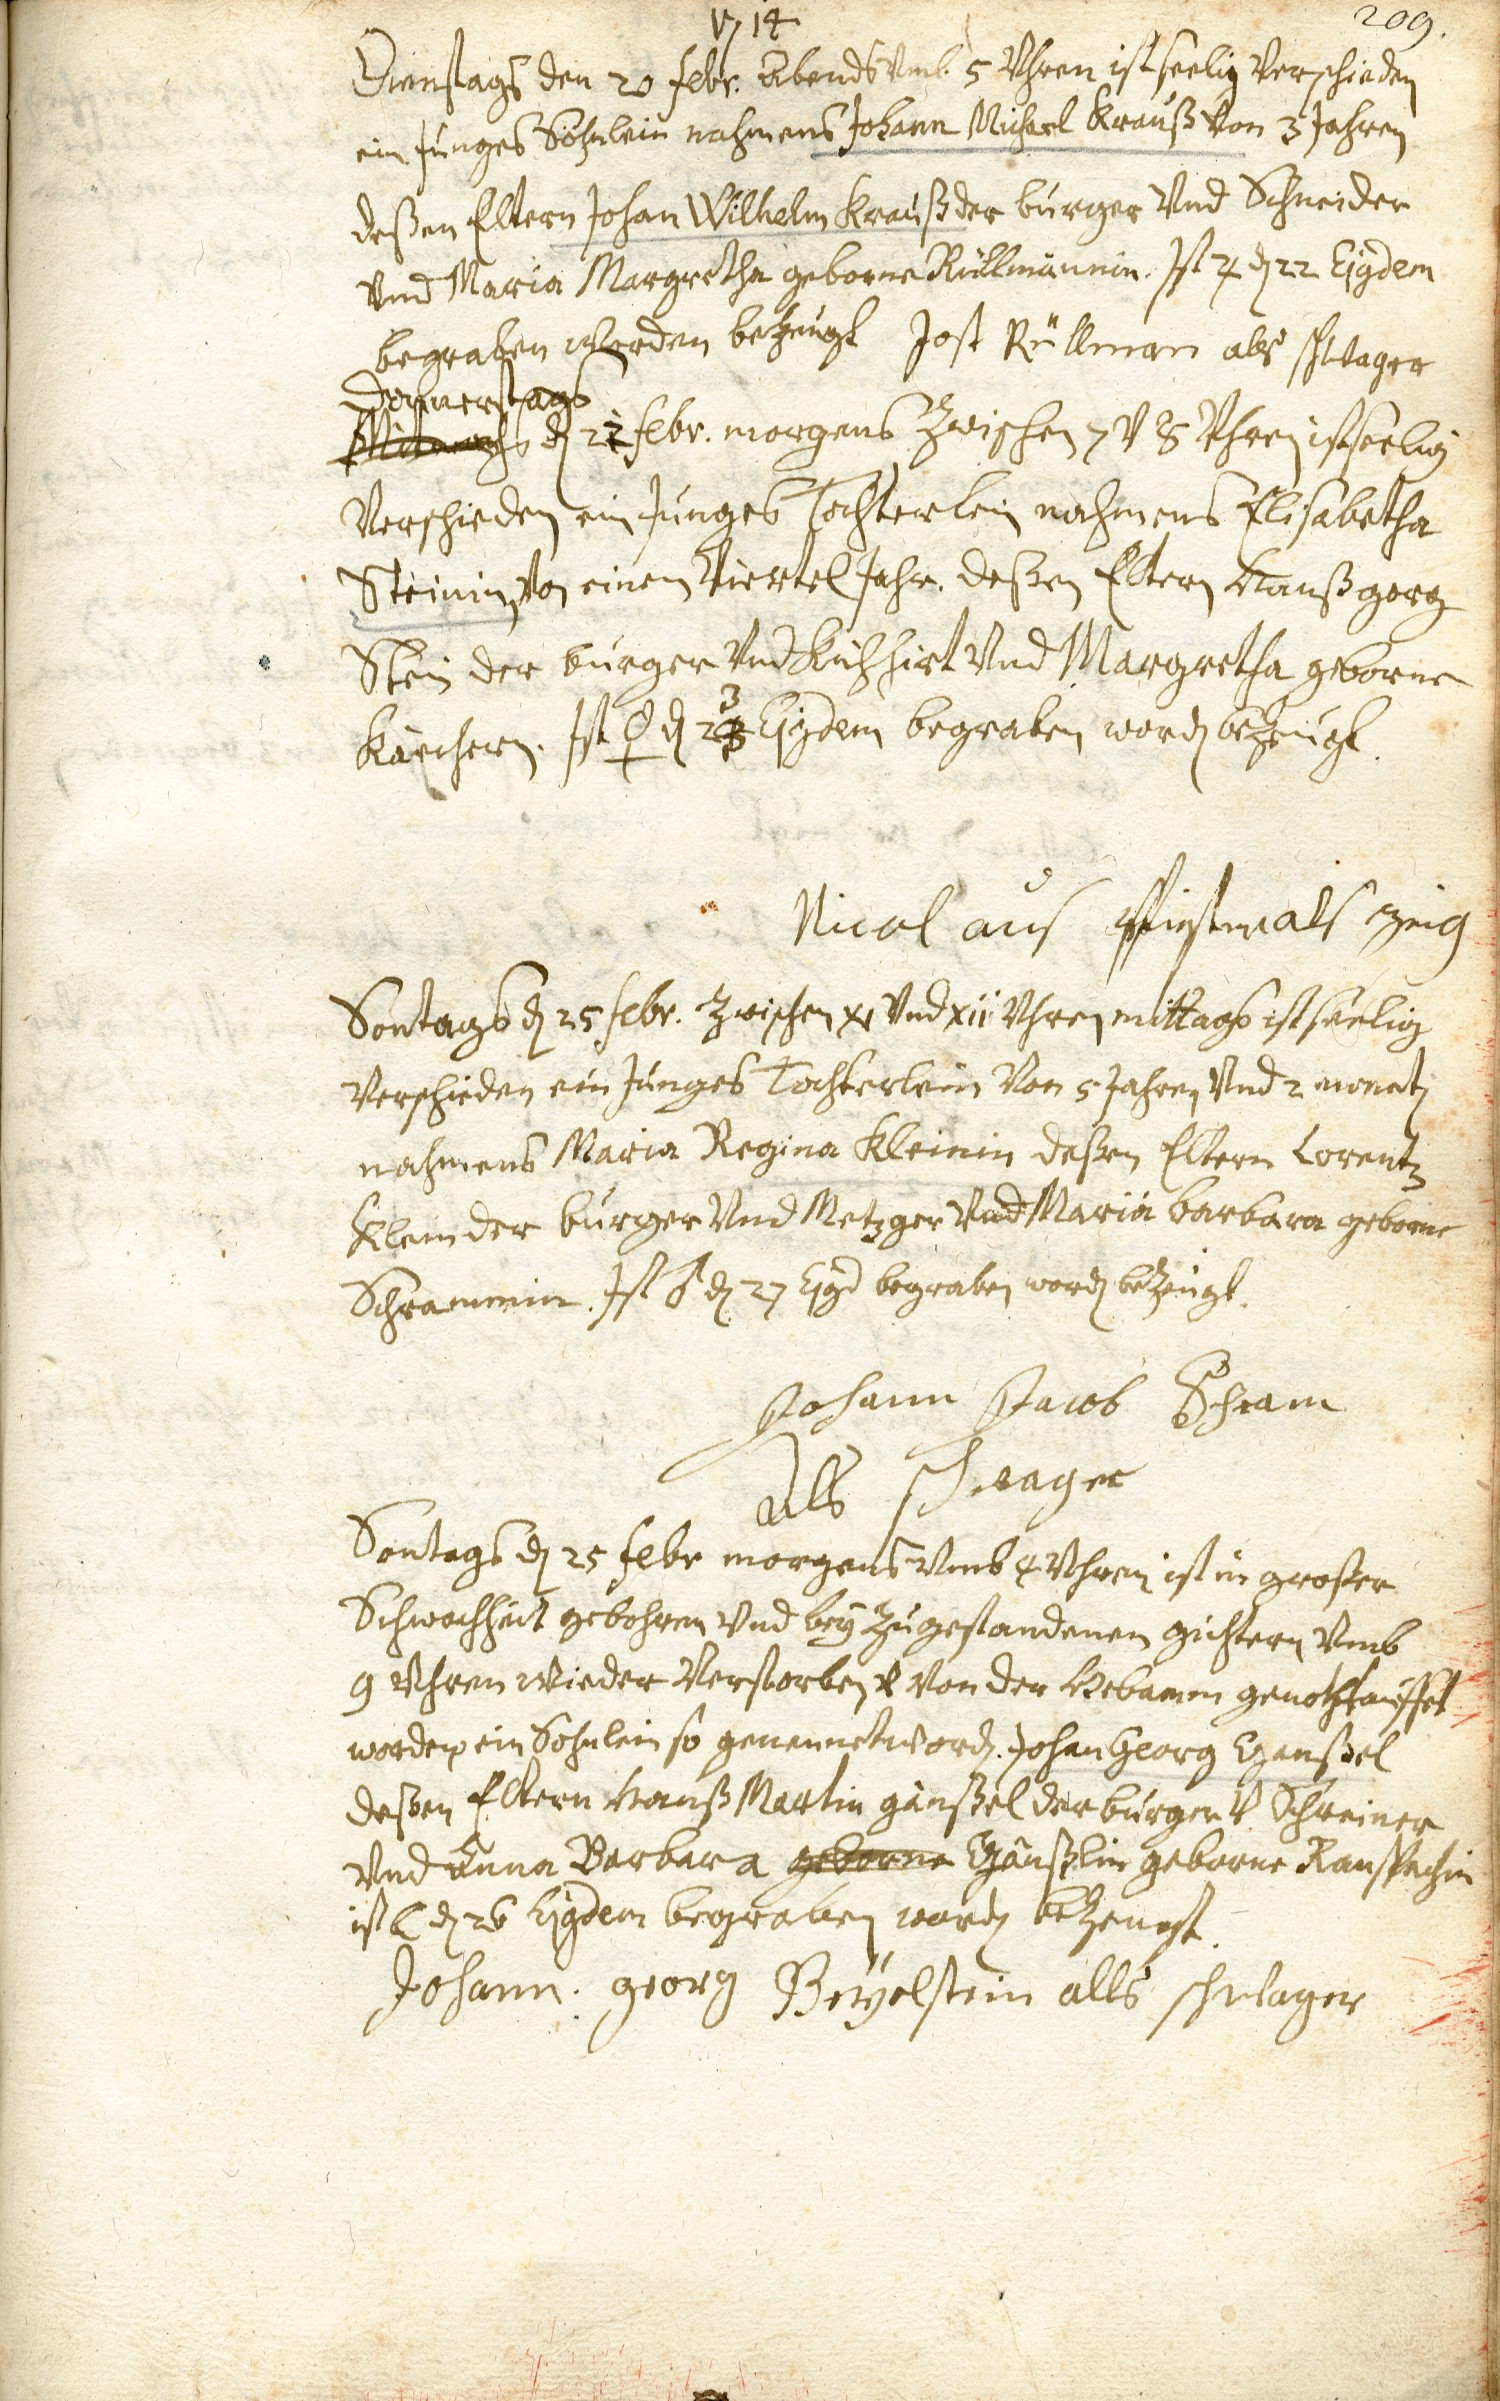 1714
209.
Dienstags den 20 febr. Abends Vmb 5 Vhren ist seelig Verschieden
ein Junges Söhnlein nahmens Johann Michael Krauß Von 3 Jahren
deßen Eltern Johan Wilhelm Krauß der burger Vnd Schneider
Vnd Maria Margretha geborne Rüllmännin. Ist ♃ dn 22 Ejgdem
begraben worden bezeugt Jost Rüllman als schwager
Donnerstags
Mittwochs dn 22 febr. morgens Zwischen 7 V 8 Vhren ist seelig
Verschieden ein Junges Tochterlein nahmens Elisabetha
Steinin, Von einem Viertel Jahr. deßen Eltern Hanß georg
Stein der burger Vnd Kühhirt Vnd Margretha geborne
Karchern. Ist ♀ dn 23 Ejgdem begraben word bezeugt.
Nicolaus als zeig
Sontags dn 25 febr. Zwischen xi Vnd xii Vhren mittags ist seelig
Verschieden ein Junges Tochterlein Von 5 Jahren Vnd 2 monat
nahmens Maria Regina Kleinin deßen Eltern Lorentz
Klein der burger Vnd Metzger Vnd Maria barbara geborne
Schrammin. Ist ♂ dn 27 Ejgd begraben word bezeugt.
Johann Jacob Schram
als schwager
Sontags dn 25 febr morgens Vmb 4 Vhren ist in großer
Schwachheit gebohren Vnd bey Zugestandenen gichtern Vmb
9 Vhren wieder Verstorben V Von der Hebamm genothtauffet
worden ein Sohnlein so genennet word. Johan Georg Ganßel
deßen Eltern Hanß Martin gänßel der burger V Schreiner
Vnd Anna Barbara geborne Gänßlin geborne Ranspachin
ist ☾ dn 26 Ejgdem begraben word bezeugt.
Johann. georg Beyelstein alls schwager